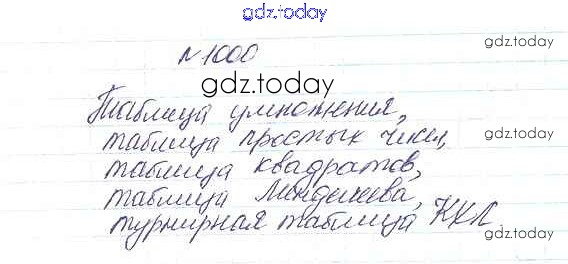 gdz.today
№1000
gdz.today
gdz.today
Таблица умножения,
таблица простых чисел,
gdz.today
таблица квадратов,
таблица Менделеева,
турнирная таблица КХЛ.
gdz.today